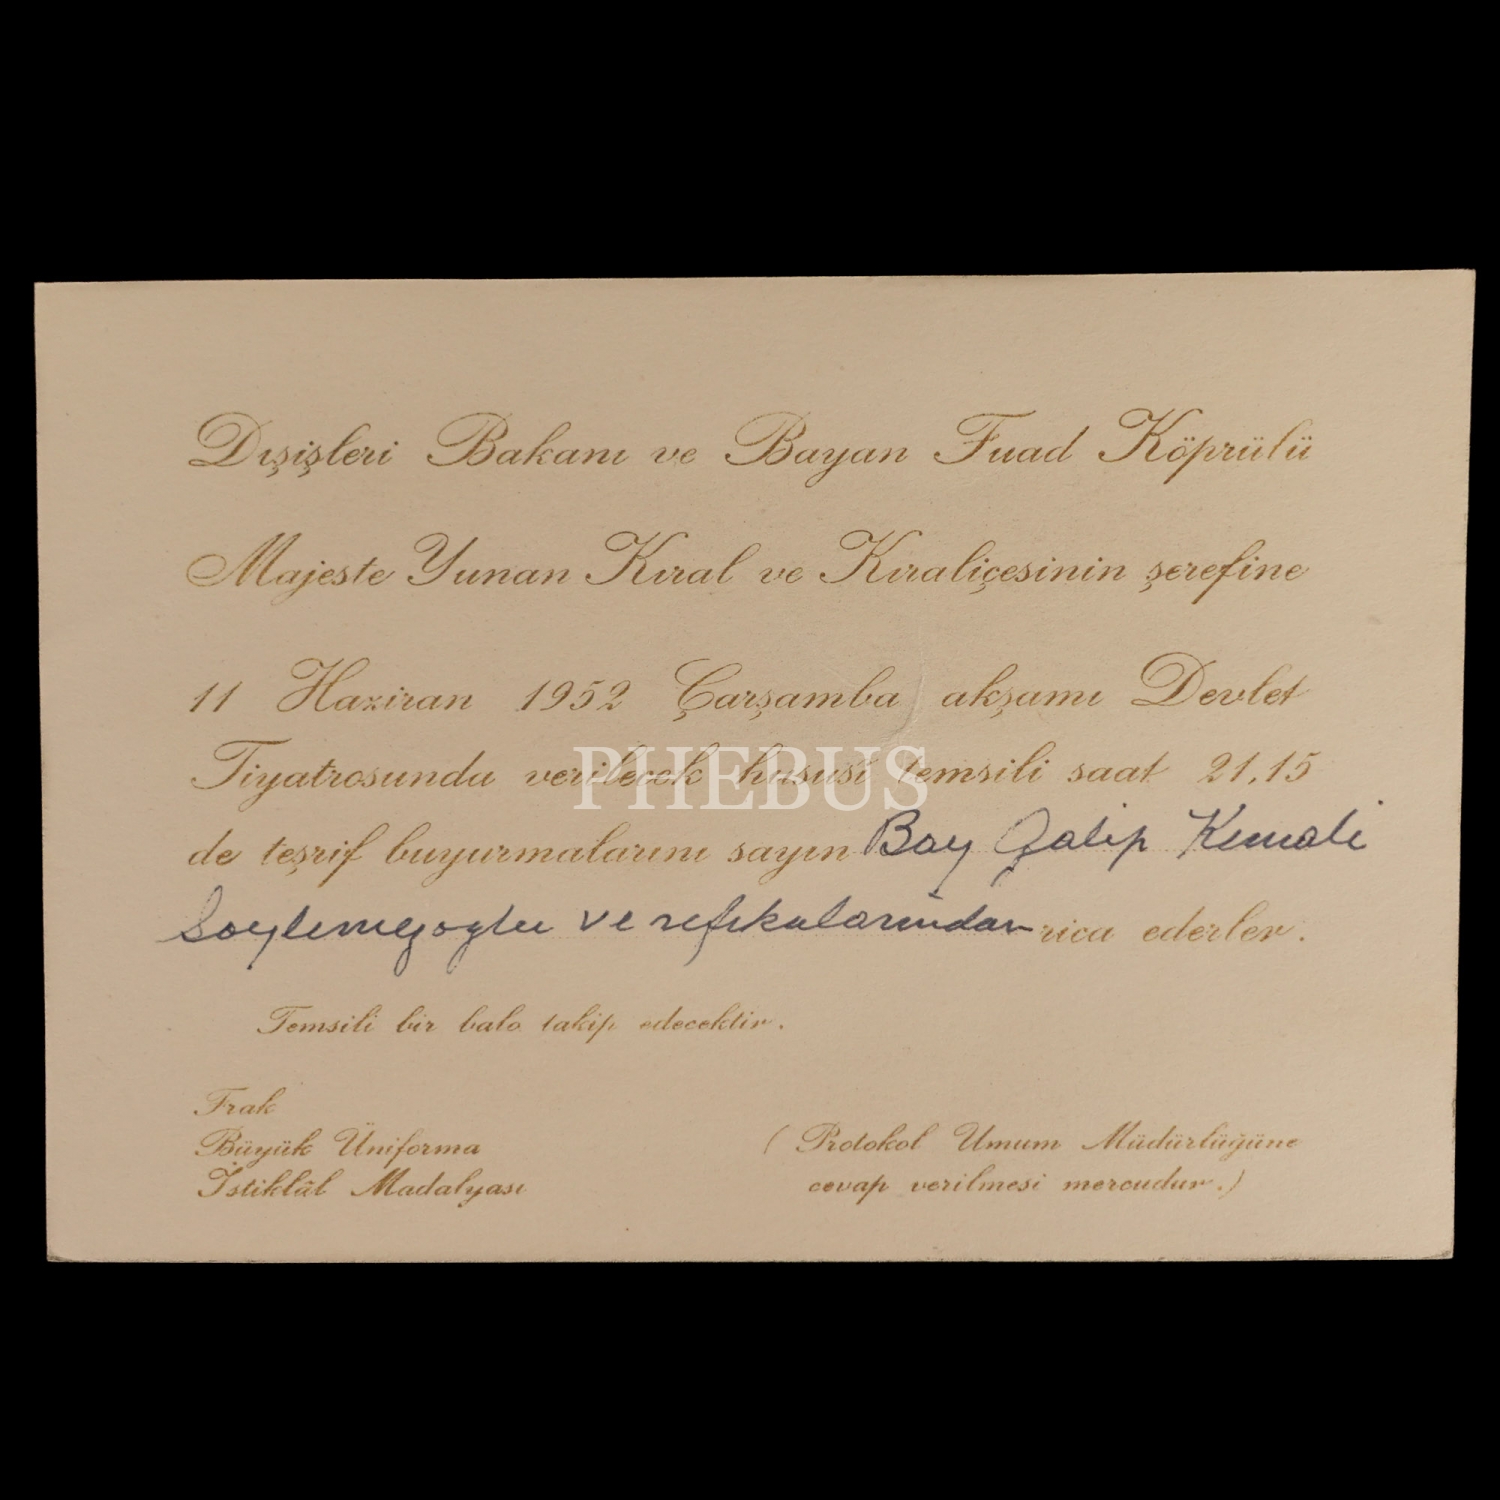 Dışişleri Bakanı ve Bayan Fuad Köprülü
Majeste Yunan Kıral ve Kıraliçesinin şerefine
11 Haziran 1952 Çarşamba akşamı Devlet
Tiyatrosunda verilecek hususî temsili saat 21,15
de teşrif buyurmalarını sayın Bay Galip Kemali
Söylemezoğlu ve refikalarından rica ederler.
Temsili bir balo takip edecektir.
Frak
Büyük Üniforma
İstiklâl Madalyası
( Protokol Umum Müdürlüğüne
cevap verilmesi mercudur.)
PHEBUS